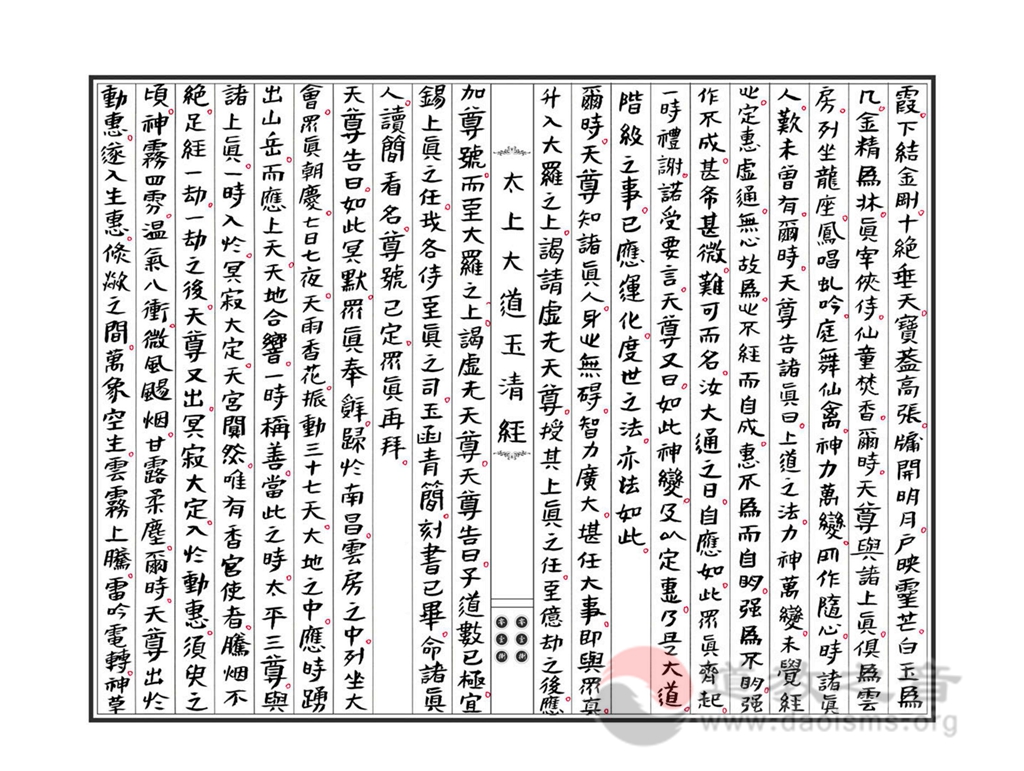 霞下結金剛十絕垂天寶蓋高張牖開明月戶映靈芒白玉爲
几金精爲牀眞宰俠侍仙童焚香爾時天尊與諸上眞俱爲雲
房列坐龍座鳳唱虬吟庭舞仙禽神力萬變罔作隨心時諸眞
人歎未曾有爾時天尊告諸眞曰上道之法力神萬變未覺經
心定惠虛通無心故爲心不經而自成惠不爲而自明强爲不明强
作不成甚希甚微難可而名汝大通之日自應如此眾眞齊起
一時禮謝諾受要言天尊又曰如此神變及以定惠乃是大道
階級之事已應運化度世之法亦如此
爾時天尊知諸眞人身心無碍智力廣大堪任大事即與眾眞
升入大羅之上謁請虛无天尊授其上眞之任至億劫之後應
太上大道玉清經
加尊號而至大羅之上謁虛无天尊天尊告曰子道數已極宜
錫上眞之任我各侍至眞之司玉函青簡刻書已畢命諸眞
人讀簡看名尊號已定眾眞再拜
天尊告曰如此冥默眾眞奉辭歸於南昌雲房之中列坐大
會眾眞朝慶七日七夜天雨香花振動三十七天大地之中應時踴
出山岳而應上天天地合響一時稱善當此之時太平三尊與
諸上眞一時入於冥寂大定天宮闃然唯有香官使者騰烟不
絕足經一劫一劫之後天尊又出冥寂大定入於動惠須臾之
頃神霧四雰溫氣八衝微風颺烟甘露柔塵爾時天尊出於
動惠遂入生惠倏歘之間萬象空生雲霧上騰雷吟電轉神草
道教之音
www.daoisms.org